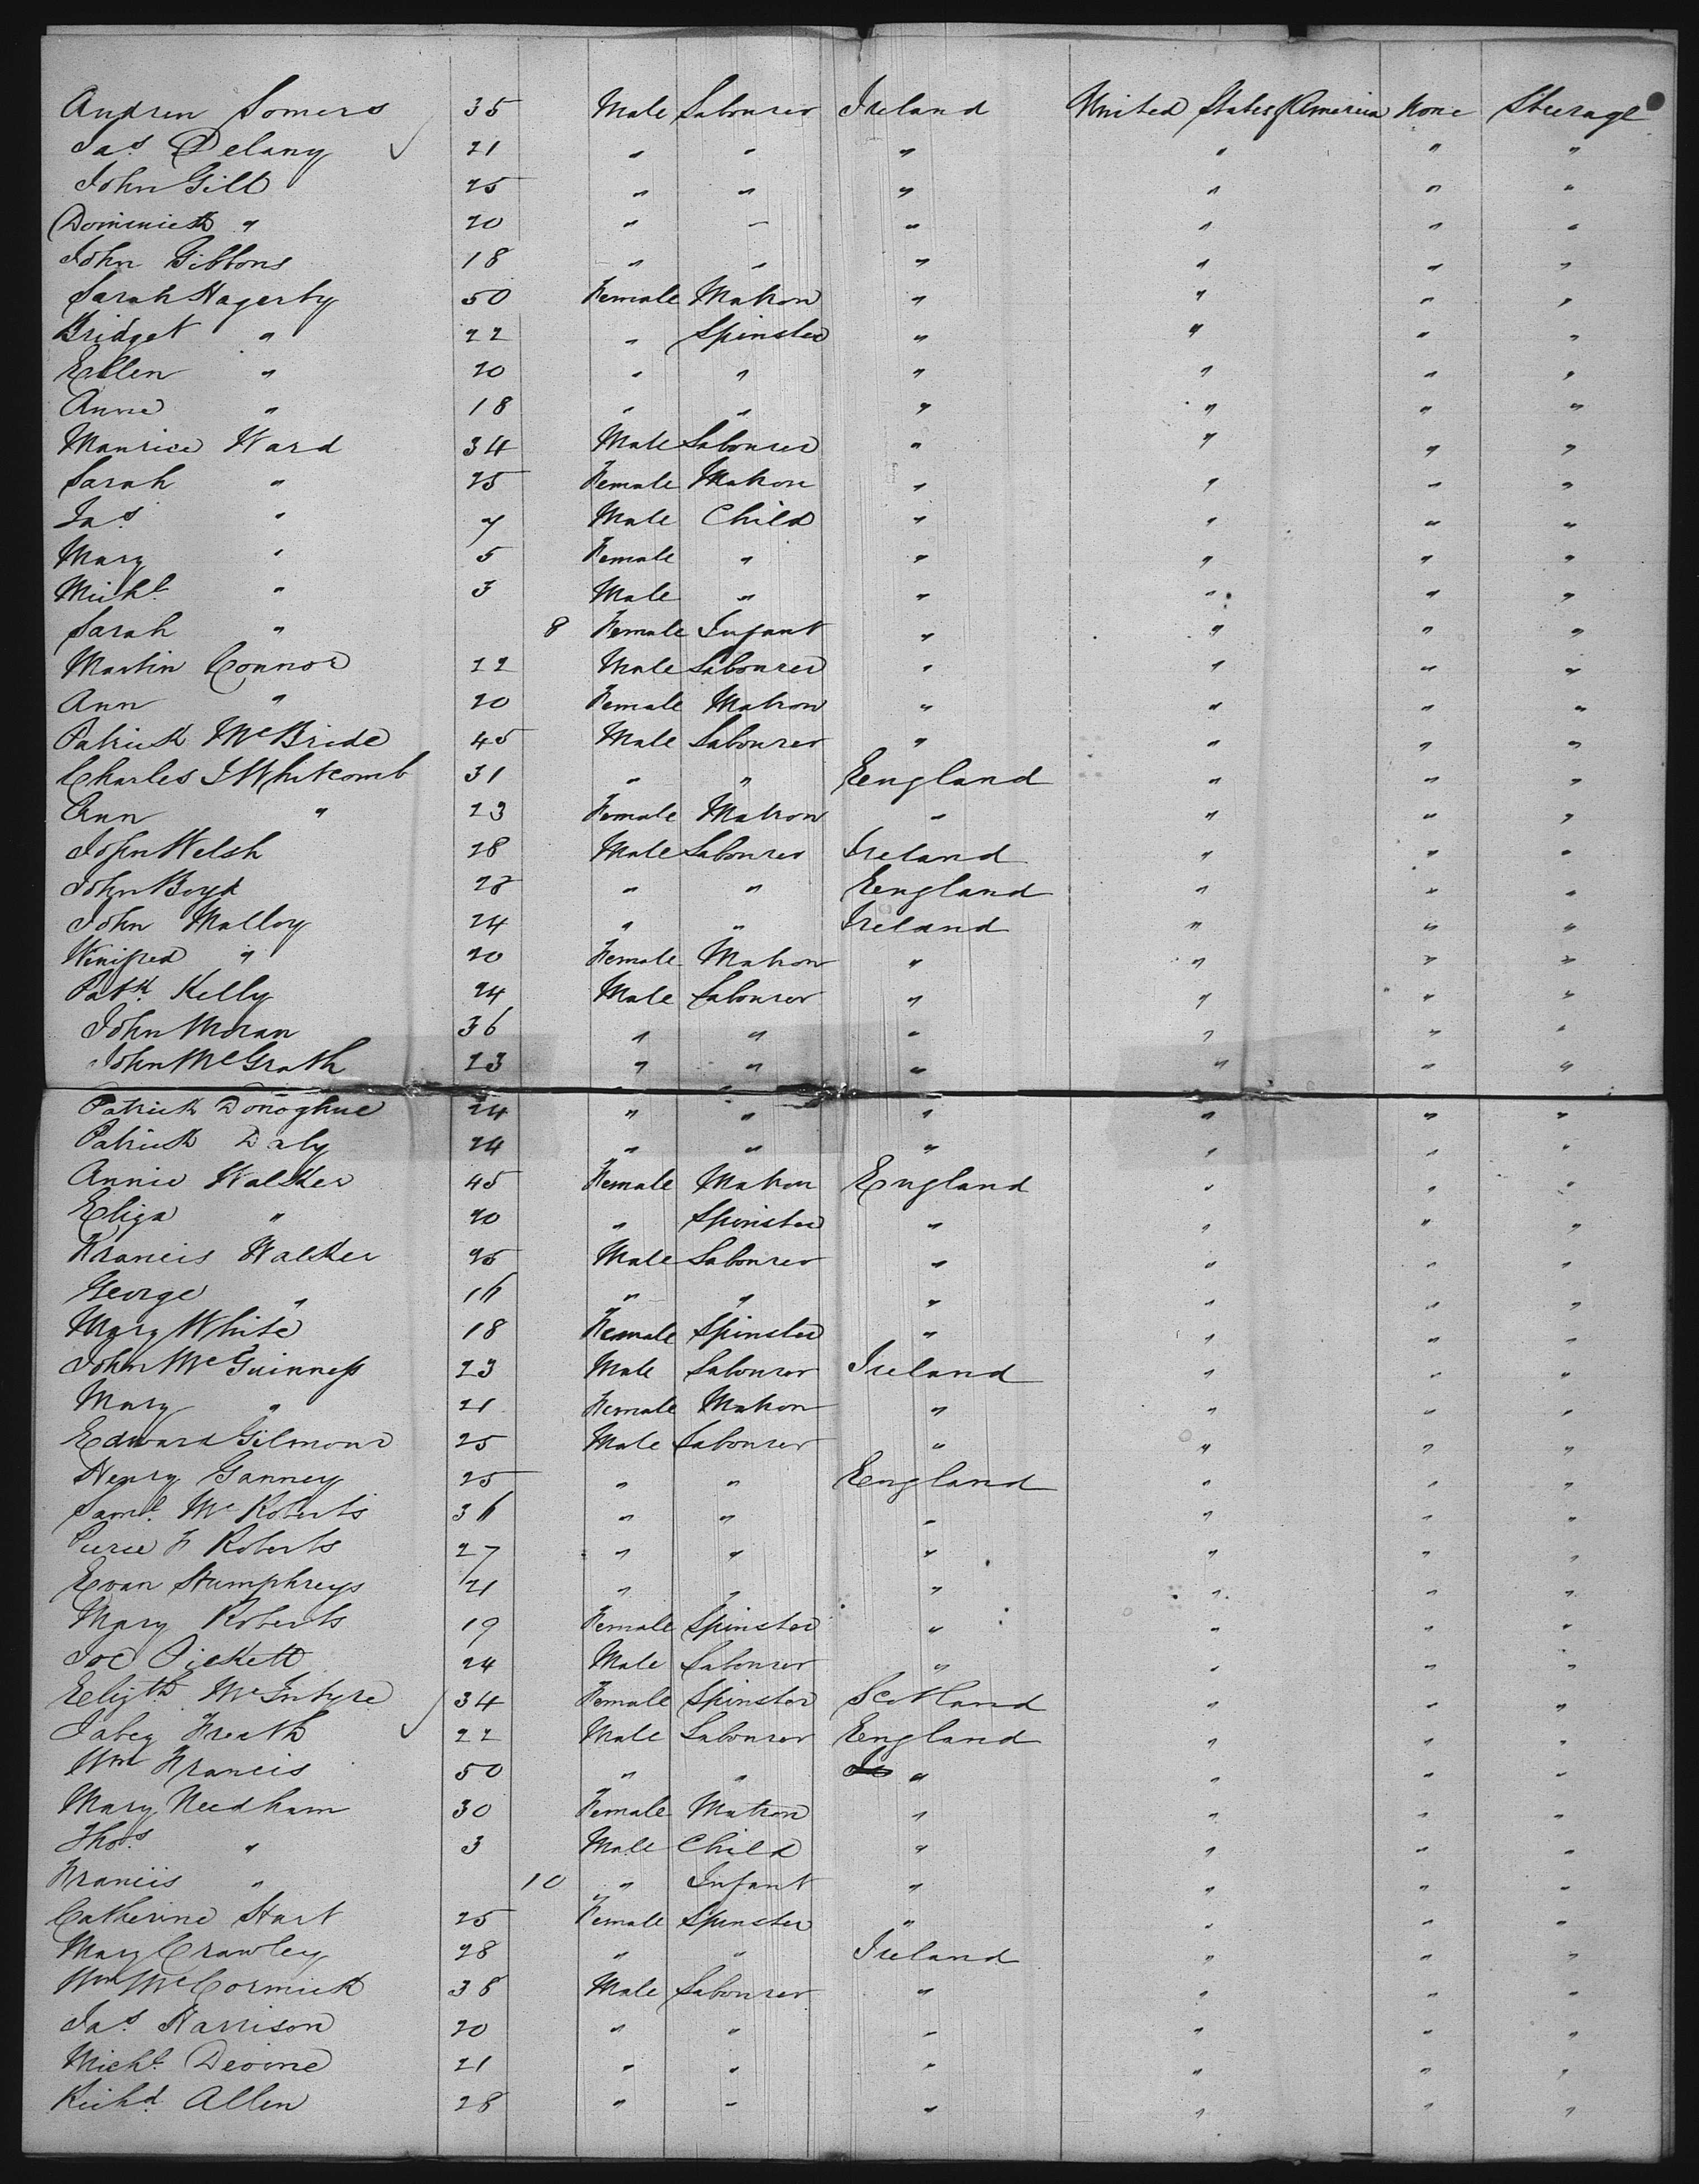 Andrew Somers 35 Male Labourer Ireland United States of America None Steerage
Jas Delany 21 " " " " " "
John Gill 25 " " " " " "
Dominick " 20 " " " " " "
John Gibbons 18 " " " " " "
Sarah Hagerty 50 Female Matron " " " "
Bridget " 22 " Spinster " " " "
Ellen " 20 " " " " " "
Anne " 18 " " " " " "
Maurice Ward 34 Male Labourer " " " "
Sarah " 25 Female Matron " " " "
Jas " 7 Male Child " " " "
Mary " 5 Female " " " " "
Michl " 3 Male " " " " "
Sarah " 8 Female Infant " " " "
Martin Connor 22 Male Labourer " " " "
Ann " 20 Female Matron " " " "
Patrick McBride 45 Male Labourer " " " "
Charles J Whitcomb 31 " " England " " "
Ann " 23 Female Matron " " " "
John Welsh 28 Male Labourer Ireland " " "
John Boyd 28 " " England " " "
John Malloy 24 " " Ireland " " "
Winifred " 20 Female Matron " " " "
Patk Kelly 24 Male Labourer " " " "
John Moran 36 " " " " " "
John McGrath 23 " " " " " "
Patrick Donoghue 24 " " " " " "
Patrick Daly 24 " " " " " "
Annie Walker 45 Female Matron England " " "
Eliza " 20 " Spinster " " " "
Francis Walker 25 Male Labourer " " " "
George " 16 " " " " " "
Mary White 18 Female Spinster " " " "
John McGuinness 23 Male Labourer Ireland " " "
Mary " 21 Female Matron " " " "
Edward Gilmour 25 Male Labourer " " " "
Henry Ganney 25 " " England " " "
Saml Mc Roberts 36 " " " " " "
Pierce F Roberts 27 " " " " " "
Evan Humphreys 21 " " " " " "
Mary Roberts 19 Female Spinster " " " "
Joe Pickett 24 Male Labourer " " " "
Elizth McIntyre 34 Female Spinster Scotland " " "
Jabez Freath 22 Male Labourer England " " "
Wm Francis 50 " " " " " "
Mary Needham 30 Female Matron " " " "
Thos " 3 Male Child " " " "
Francis " 10 " Infant " " " "
Catherine Hart 25 Female Spinster " " " "
Mary Crawley 28 " " Ireland " " "
Wm McCormick 38 Male Labourer " " " "
Jas Harrison 20 " " " " " "
Michl Devine 21 " " " " " "
Richd Allen 28 " " " " " "